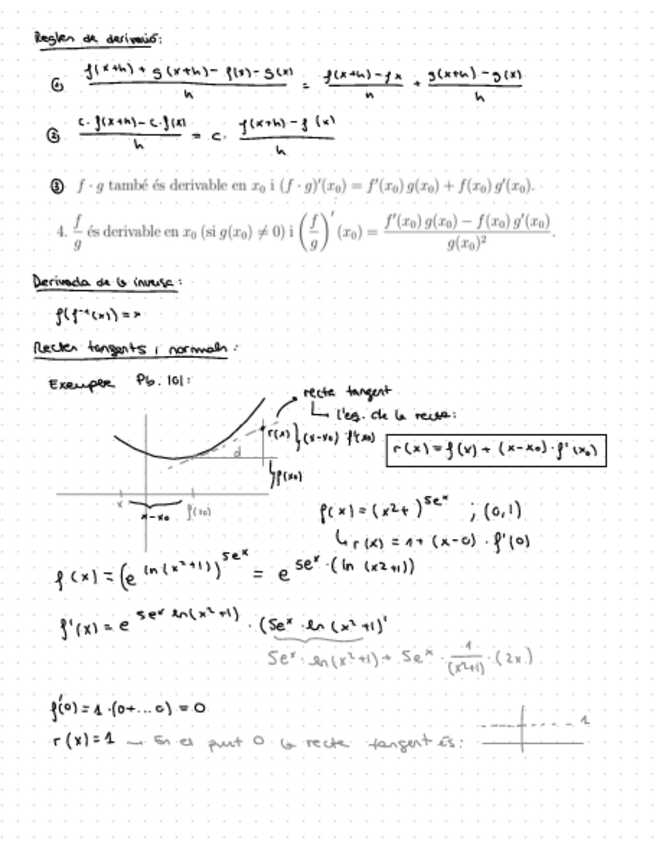 Regles de derivació:
① f(x+h) + g(x+h) - f(x) - g(x) / h = f(x+h) - fx / h + g(x+h) - g(x) / h
② c·f(x+h) - c·f(x) / h = c· f(x+h) - f(x) / h
③ f · g també és derivable en x₀ i (f · g)'(x₀) = f'(x₀) g(x₀) + f(x₀) g'(x₀).
4. f/g és derivable en x₀ (si g(x₀) ≠ 0) i (f/g)'(x₀) = f'(x₀) g(x₀) − f(x₀) g'(x₀) / g(x₀)².
Derivada de la inversa:
f(f⁻¹(x)) = x
Rectes tangents i normals:
Exemple Pb. 101:
recta tangent
↳ l'eq. de la recta:
r(x) } (x-x₀) f'(x₀)
r(x) = f(x) + (x-x₀) · f'(x₀)
d
f(x₀)
x
x-x₀
f(x₀)
f(x) = (x²+ )^5eˣ ; (0,1)
↳ r(x) = 1 + (x-0) · f'(0)
f(x) = (e^ln(x²+1))^5eˣ = e^5eˣ·(ln(x²+1))
f'(x) = e^5eˣ ln(x²+1) · (5eˣ · ln(x²+1)'
5eˣ · ln(x²+1) + 5eˣ · 1/(x²+1) · (2x)
f'(0) = 1 · (0+...0) = 0
r(x) = 1 → En el punt 0 la recta tangent és:
1